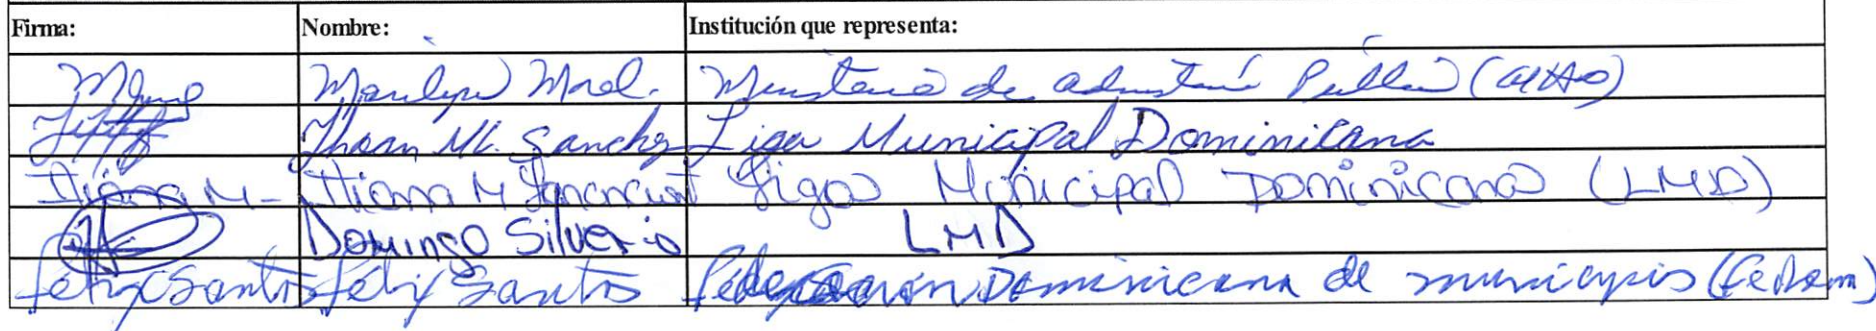 Firma: Nombre: Institución que representa:
Marilyn Ministerio de Pública
Sanchez Liga Municipal Dominicana
Iliana M. Iliana M Liga Municipal Dominicana (LMD)
Domingo Silverio LMD
Felix Santos Felix Santos Federación Dominicana de municipios (Fedomu)